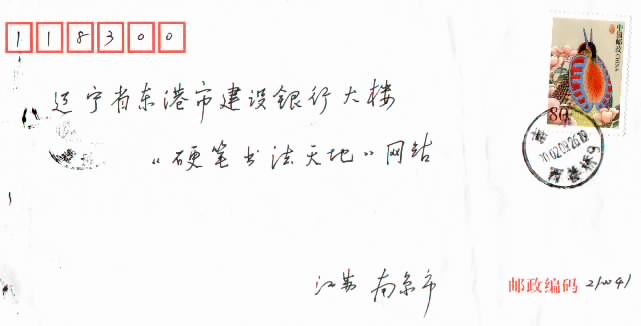 118300
中国邮政 CHINA
80
辽宁省东港市建设银行大楼
“硬笔书法天地”网站
江苏 南京市
邮政编码 210041